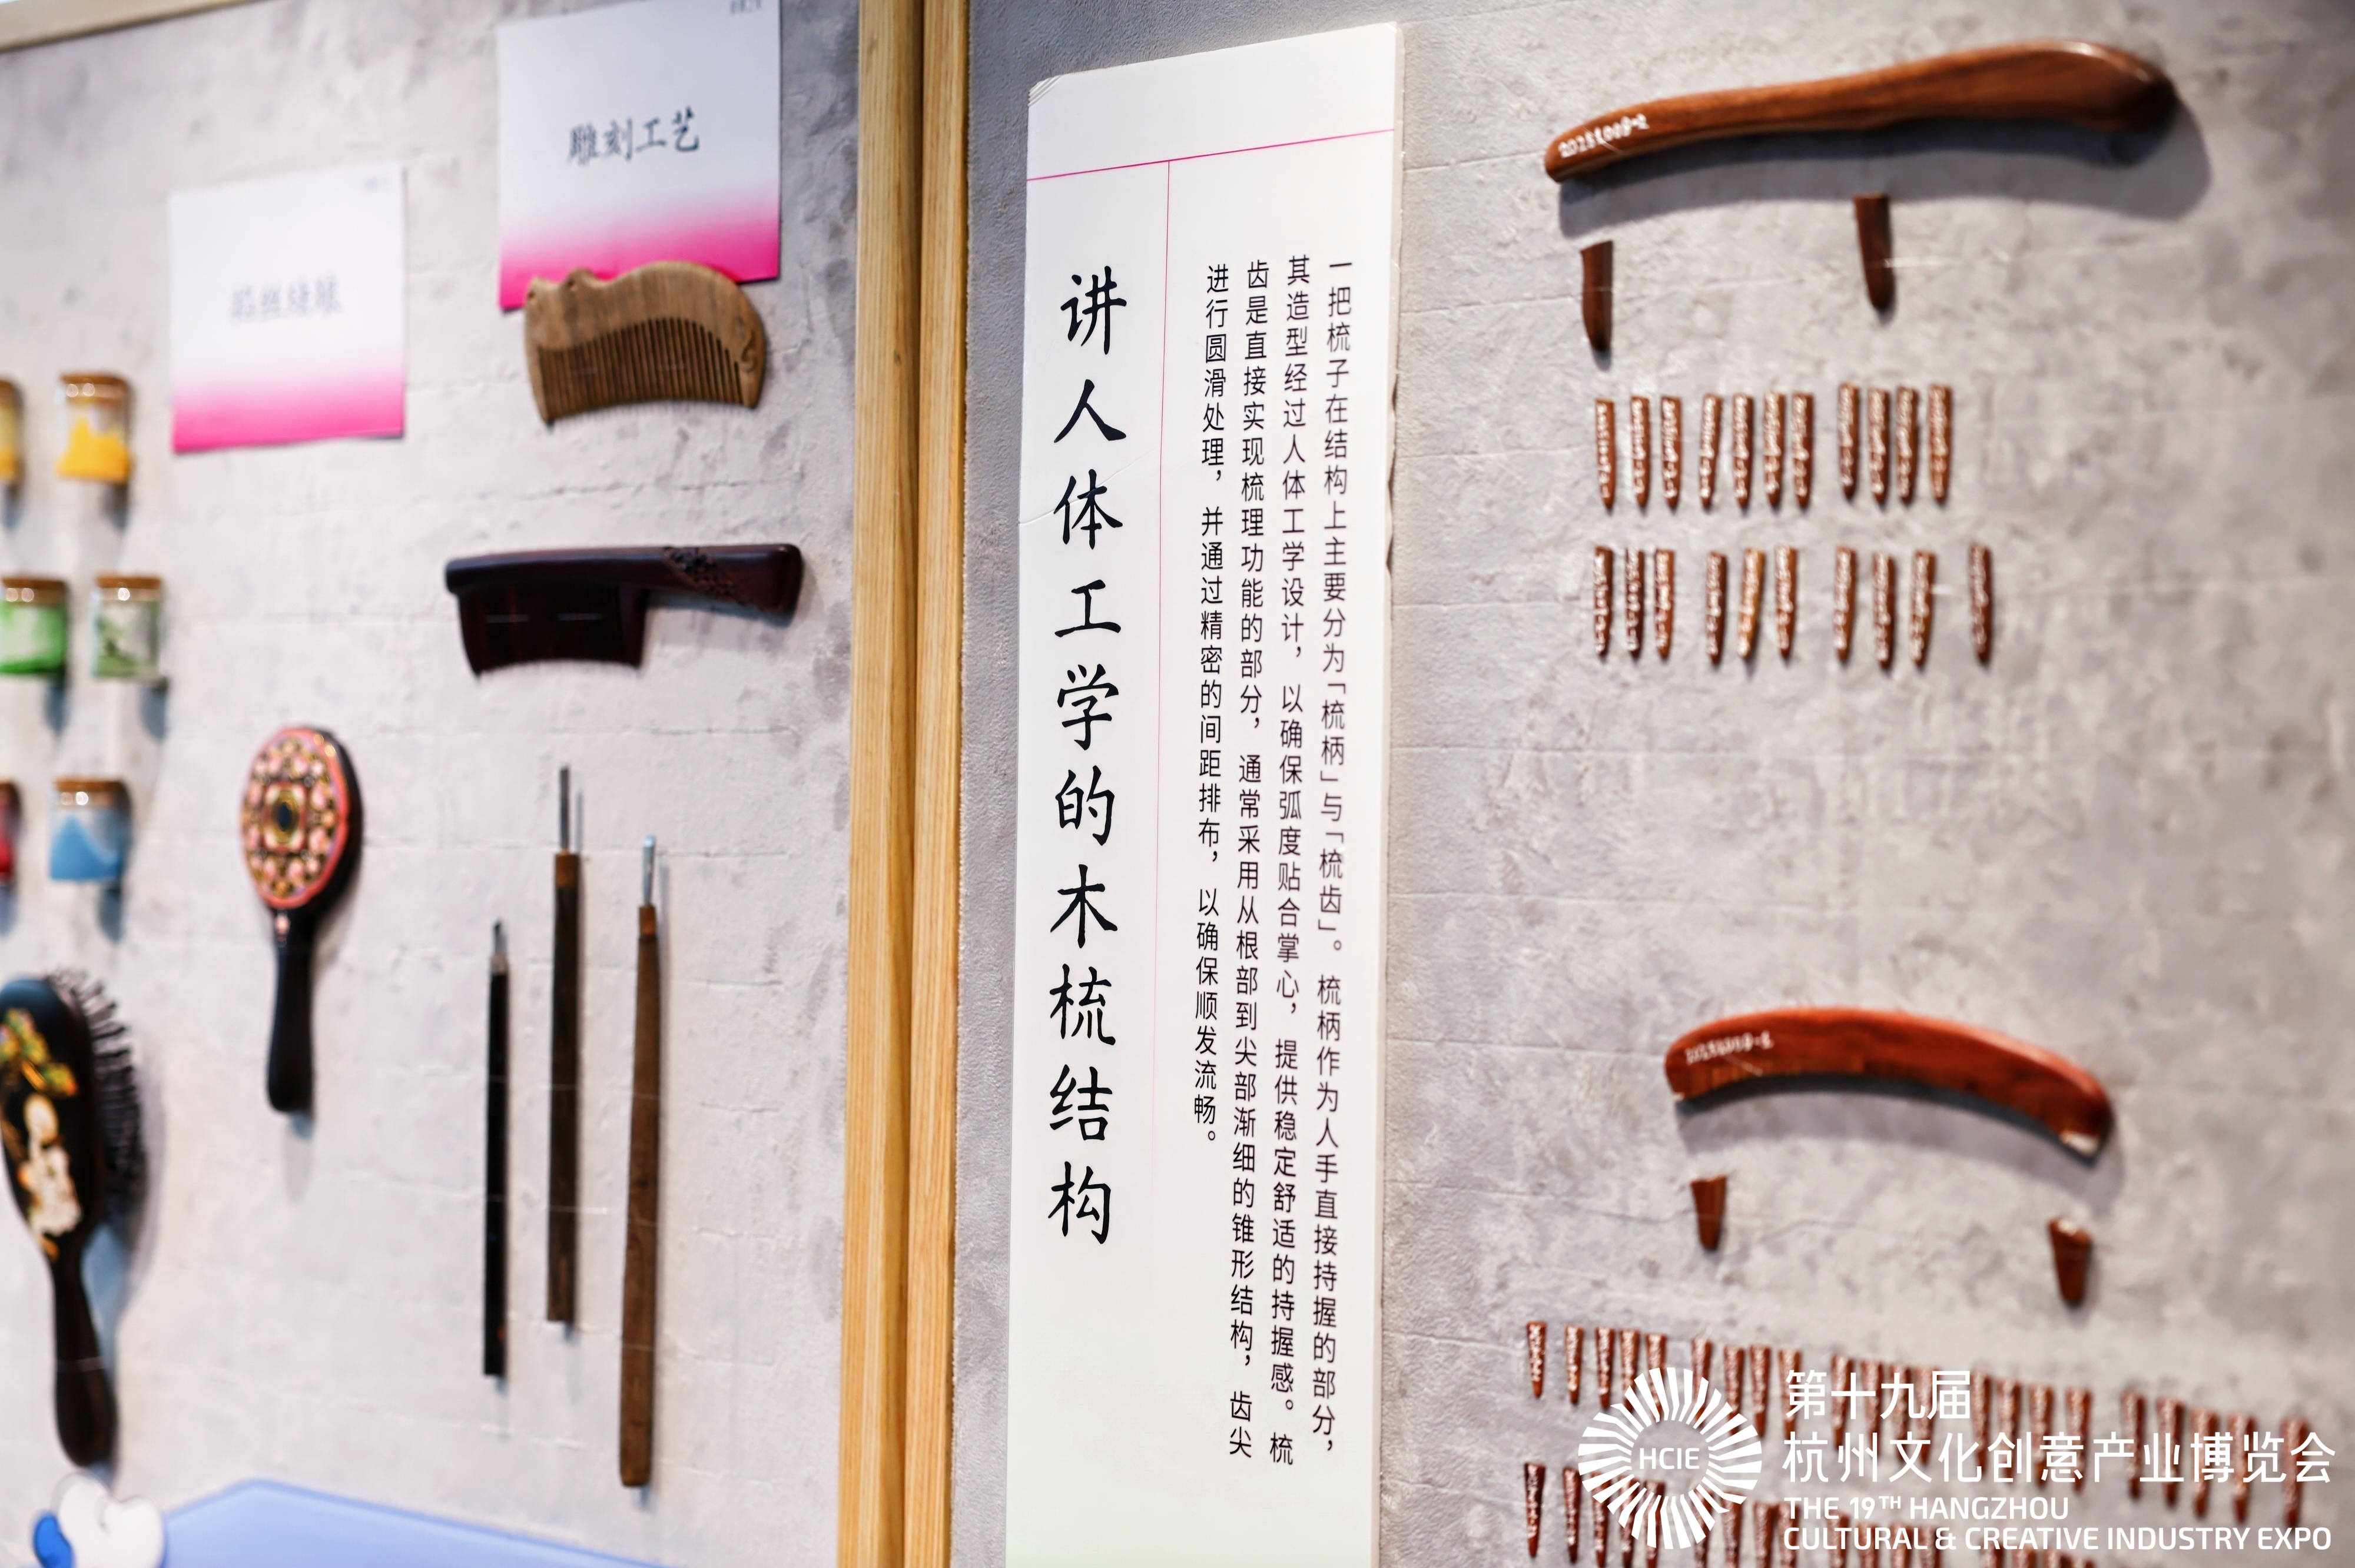 雕刻工艺
讲人体工学的木梳结构
一把梳子在结构上主要分为「梳柄」与「梳齿」。梳柄作为人手直接持握的部分，
其造型经过人体工学设计，以确保弧度贴合掌心，提供稳定舒适的持握感。梳
齿是直接实现梳理功能的部分，通常采用从根部到尖部渐细的锥形结构，齿尖
进行圆滑处理，并通过精密的间距排布，以确保顺发流畅。
HCIE
第十九届
杭州文化创意产业博览会
THE 19TH HANGZHOU
CULTURAL & CREATIVE INDUSTRY EXPO